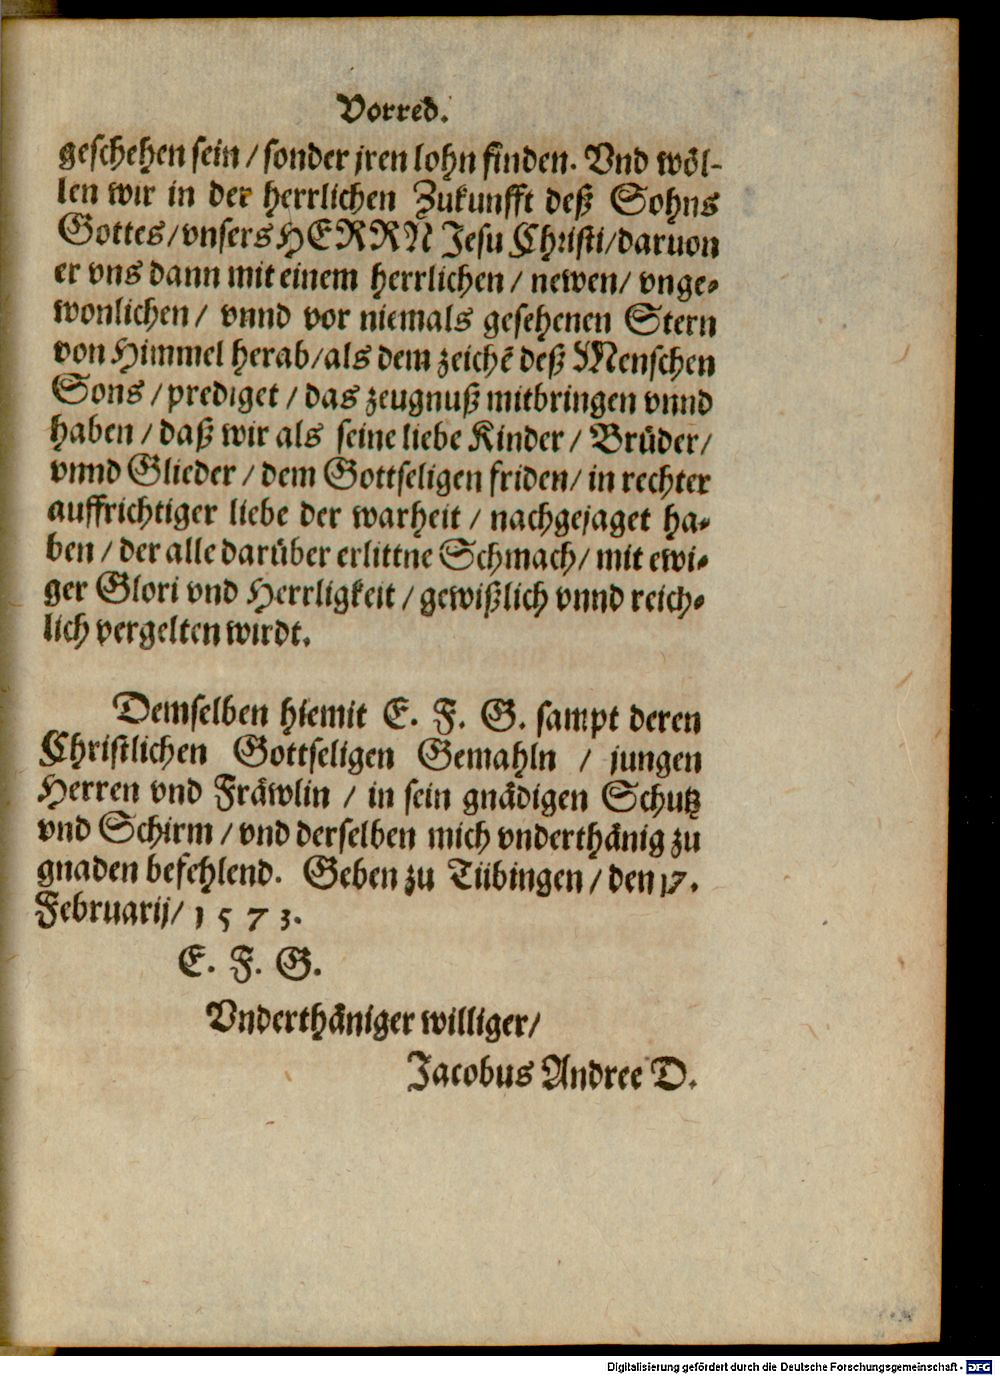 Vorred.
geschehen sein / sonder jren lohn finden. Vnd wöl-
len wir in der herrlichen Zukunfft deß Sohns
Gottes / vnsers HERRN Jesu Christi / daruon
er vns dann mit einem herrlichen / newen / vnge-
wonlichen / vnnd vor niemals gesehenen Stern
von Himmel herab / als dem zeichē deß Menschen
Sons / prediget / das zeugnuß mitbringen vnnd
haben / daß wir als seine liebe Kinder / Brüder /
vnnd Glieder / dem Gottseligen friden / in rechter
auffrichtiger liebe der warheit / nachgejaget ha-
ben / der alle darüber erlittne Schmach / mit ewi-
ger Glori vnd Herrligkeit / gewißlich vnnd reich-
lich vergelten wirdt.
Demselben hiemit E. F. G. sampt deren
Christlichen Gottseligen Gemahln / jungen
Herren vnd Fräwlin / in sein gnädigen Schutz
vnd Schirm / vnd derselben mich vnderthänig zu
gnaden befehlend. Geben zu Tübingen / den 17.
Februarij / 1573.
E. F. G.
Vnderthäniger williger /
Jacobus Andree D.
Digitalisierung gefördert durch die Deutsche Forschungsgemeinschaft - DFG